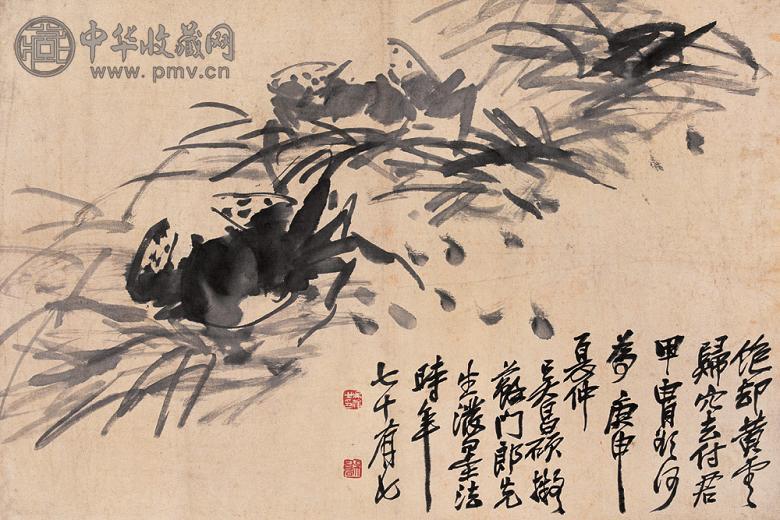 中华收藏网
www.pmv.cn
饱却黄云
归穴去付君
甲胄欲何
为庚申
夏仲
吴昌硕拟
苏门郎先
生泼墨法
时年
七十有七